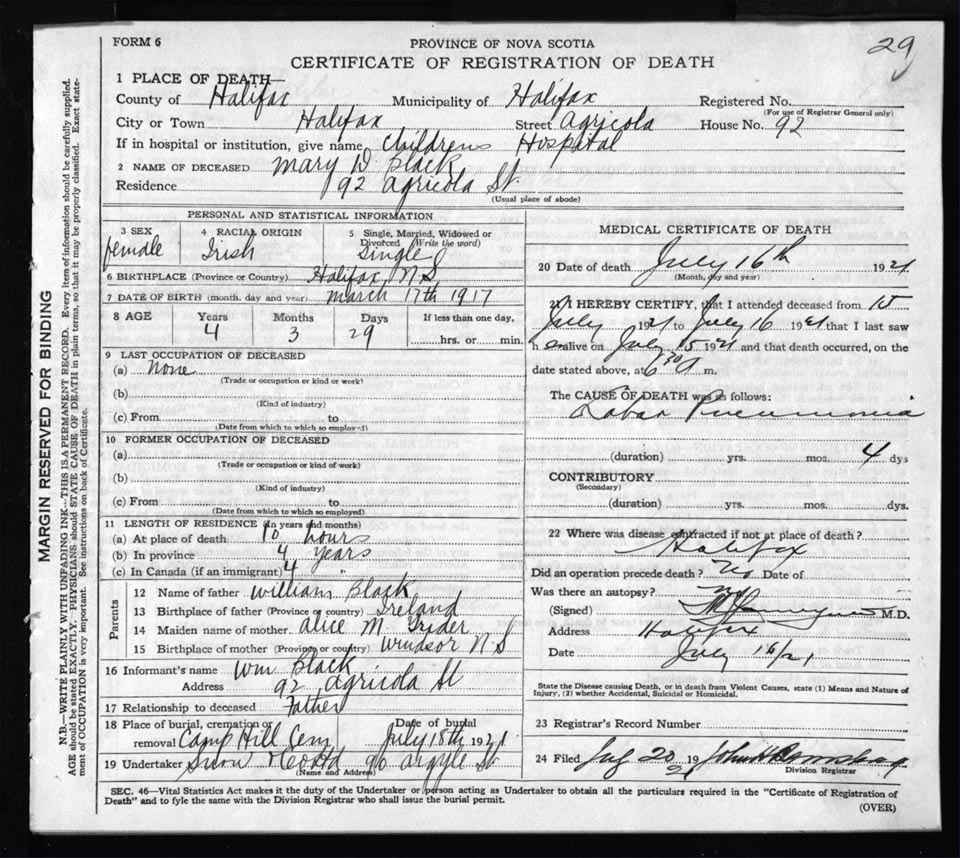 FORM 6
PROVINCE OF NOVA SCOTIA
29
CERTIFICATE OF REGISTRATION OF DEATH
1 PLACE OF DEATH—
County of Halifax Municipality of Halifax Registered No.
(For use of Registrar General only)
City or Town Halifax Street Agricola House No. 92
If in hospital or institution, give name Childrens Hospital
2 NAME OF DECEASED Mary D Black
Residence 92 Agricola St.
(Usual place of abode)
PERSONAL AND STATISTICAL INFORMATION
3 SEX female
4 RACIAL ORIGIN Irish
5 Single, Married, Widowed or Divorced (Write the word) Single
6 BIRTHPLACE (Province or Country) Halifax, N.S
7 DATE OF BIRTH (month, day and year) March 17th 1917
8 AGE Years Months Days If less than one day,
4 3 29 hrs. or min.
9 LAST OCCUPATION OF DECEASED
(a) None
(Trade or occupation or kind or work)
(b)
(Kind of industry)
(c) From to
(Date from which to which so employed)
10 FORMER OCCUPATION OF DECEASED
(a)
(Trade or occupation or kind of work)
(b)
(Kind of industry)
(c) From to
(Date from which to which so employed)
11 LENGTH OF RESIDENCE (In years and months)
(a) At place of death 10 hours
(b) In province 4 years
(c) In Canada (if an immigrant) 4 "
Parents
12 Name of father William Black
13 Birthplace of father (Province or country) Ireland
14 Maiden name of mother Alice M.
15 Birthplace of mother (Province or country) Windsor N S
16 Informant's name Wm Black
Address 92 Agricola St
17 Relationship to deceased Father
18 Place of burial, cremation or Date of burial
removal Camp Hill Cem July 18th 1921
19 Undertaker Snow 90 Argyle St
(Name and Address)
MEDICAL CERTIFICATE OF DEATH
20 Date of death July 16th 1921
(Month, day and year)
21 I HEREBY CERTIFY, that I attended deceased from 15
July 1921 to July 16 1921 that I last saw
h er alive on July 15 1921 and that death occurred, on the
date stated above, at 6 30 A m.
The CAUSE OF DEATH was as follows:
Lobar Pneumonia
(duration) yrs. mos. 4 dys
CONTRIBUTORY
(Secondary)
(duration) yrs. mos. dys.
22 Where was disease contracted if not at place of death?
Halifax
Did an operation precede death? No Date of
Was there an autopsy? No
(Signed) M.D.
Address Halifax
Date July 16/21
State the Disease causing Death, or in death from Violent Causes, state (1) Means and Nature of
Injury, (2) whether Accidental, Suicidal or Homicidal.
23 Registrar's Record Number
24 Filed 20 1921 John
Division Registrar
SEC. 46—Vital Statistics Act makes it the duty of the Undertaker or person acting as Undertaker to obtain all the particulars required in the "Certificate of Registration of
Death" and to fyle the same with the Division Registrar who shall issue the burial permit.
(OVER)
MARGIN RESERVED FOR BINDING
N.B.—WRITE PLAINLY WITH UNFADING INK—THIS IS A PERMANENT RECORD. Every item of information should be carefully supplied.
AGE should be stated EXACTLY. PHYSICIANS should STATE CAUSE OF DEATH in plain terms, so that it may be properly classified. Exact state-
ment of OCCUPATION is very important. See instructions on back of Certificate.